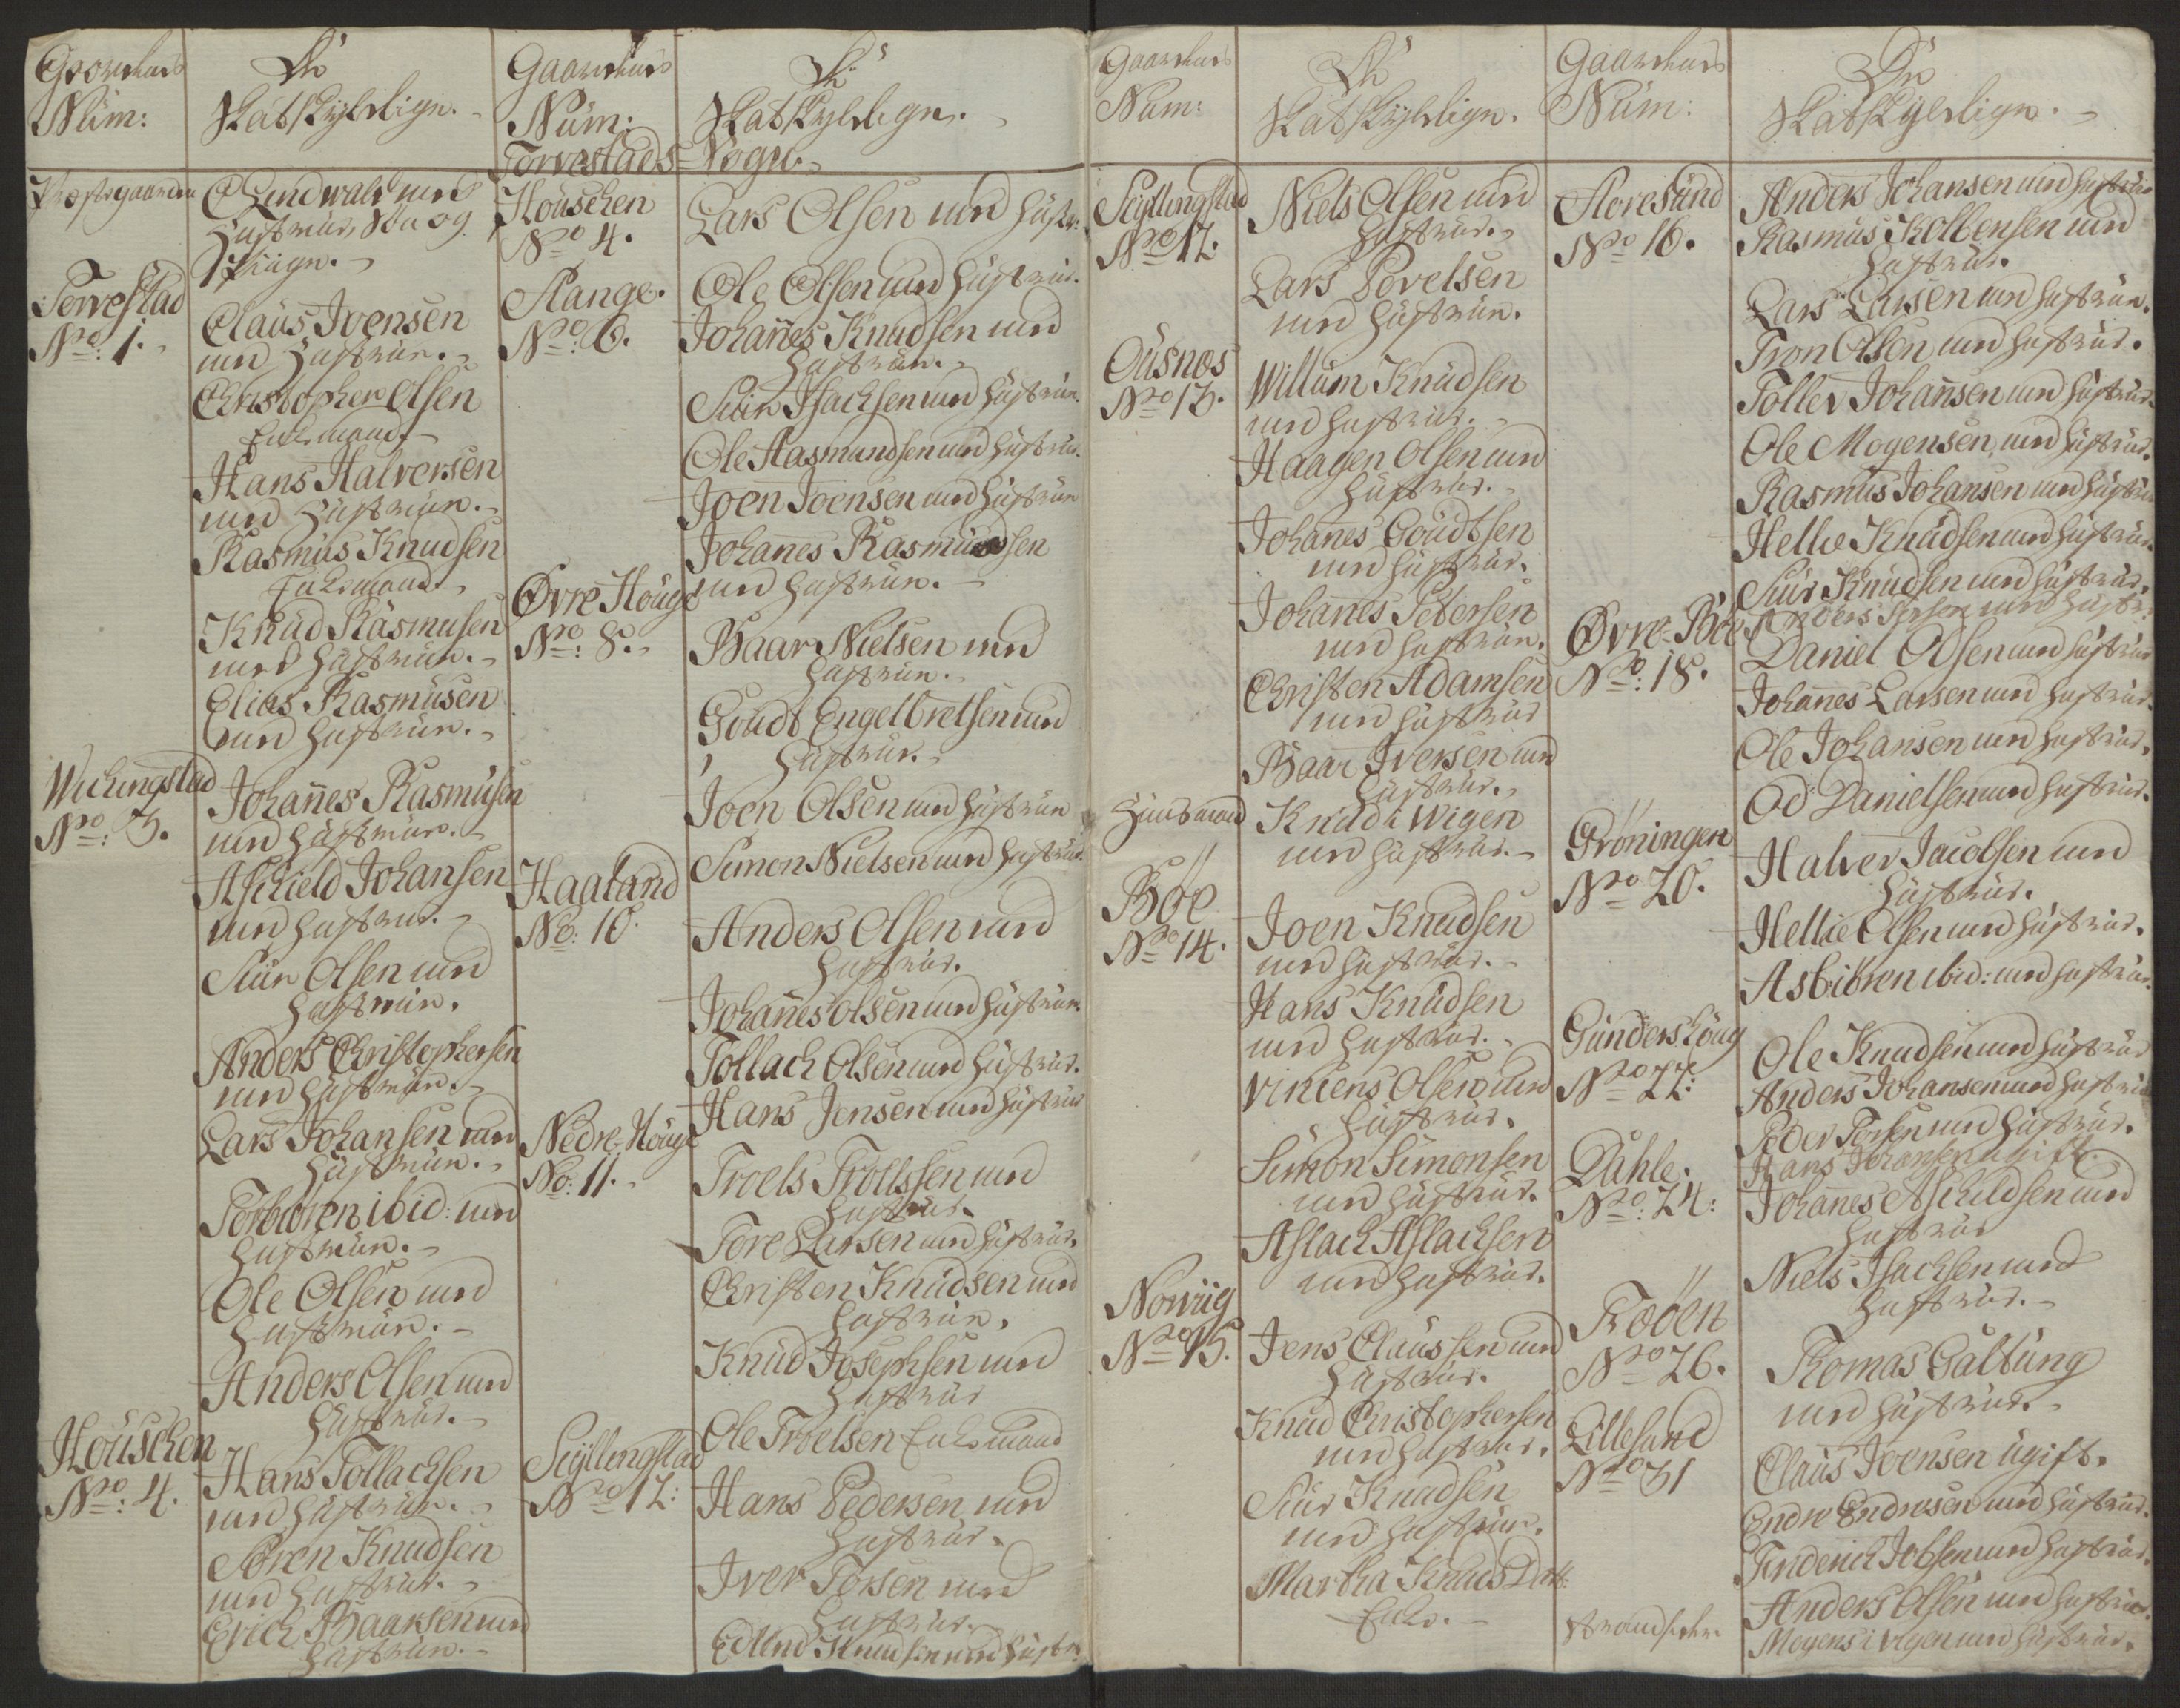 Gaardens
Num:
De
Skatskyldige.
Præstegaarden
C Lindwald med
Hustrue, Søn og
Pige.
Torvestad
No: 1.
Claus Ivensen
med Hustrue.
Christopher Olsen
Enkemand.
Hans Halversen
med Hustrue.
Rasmus Knudsen
Enkemand.
Knud Rasmusen
med Hustrue.
Elias Rasmusen
med Hustrue.
Wichingstad
No: 3.
Johannes Rasmusen
med Hustrue.
Aschield Johansen
med Hustrue.
Siur Olsen med
Hustrue.
Anders Christophersen
med Hustrue.
Lars Johansen med
Hustrue.
Torbiøren ibid: med
Hustrue.
Ole Olsen med
Hustrue.
Anders Olsen med
Hustrue.
Høuschen
No: 4.
Hans Tollachsen
med Hustrue.
Søren Knudsen
med Hustrue.
Erich Baarsen med
Hustrue.
Gaardens
Num:
De
Skatskyldige.
Torvestads Sogn.
Høuschen
No 4.
Lars Olsen med Hustr:
Stange.
No: 6.
Ole Olsen med Hustrue.
Johannes Knudsen med
Hustrue.
Siur Isachsen med Hustrue.
Ole Aasmundsen med Hustrue.
Joen Joensen med Hustrue
Johanes Rasmussen
med Hustrue.
Øvre Høuge
No: 8.
Baar Nielsen med
Hustrue.
Goudt Engelbretsen med
Hustrue.
Joen Olsen med Hustrue
Simon Nielsen med Hustrue
Haaland
No: 10.
Anders Olsen med
Hustrue.
Johannes Olsen med Hustrue.
Tollach Olsen med Hustrue.
Hans Jensen med Hustrue
Nedre Høuge
No: 11.
Troels Trollssen med
Hustrue.
Tore Larsen med Hustrue.
Christen Knudsen med
Hustrue.
Knud Josephsen med
Hustrue
Ole Troelsen Enkemand
Seyllingstad
No 12:
Hans Pedersen med
Hustrue.
Iver Torsen med
Hustrue.
Edlend Knudsen med Hustr:
Gaardens
Num:
De
Skatskyldige.
Seyllingstad
No 12.
Niels Olsen med
Hustrue.
Lars Povelsen
med Hustrue.
Ousnos
No 13.
Willum Knudsen
med Hustrue.
Haagen Olsen med
Hustrue.
Johannes Goudtsen
med Hustrue.
Johannes Petersen
med Hustrue.
Christen Adamsen
med Hustrue
Baar Iversen med
Hustrue.
Huusmand
Knud i Wigen
med Hustrue.
Böe
No 14.
Joen Knudsen
med Hustrue.
Hans Knudsen
med Hustrue.
Vincens Olsen med
Hustrue.
Simon Simonsen
med Hustrue.
Aslach Aslachsen
med Hustrue.
Norviig
No 15.
Jens Claussen med
Hustrue.
Knud Christophersen
med Hustrue.
Siur Knudsen
med Hustrue.
Martha Knuds Datt:
Enke.
Gaardens
Num:
De
Skatskyldige.
Storesund
No 16.
Anders Johansen med Hustrue
Rasmus Kolbensen med
Hustrue.
Lars Larsen med Hustrue.
Tron Olsen med Hustrue.
Tollev Johannsen med Hustrue.
Ole Mogensen med Hustrue.
Rasmus Johansen med Hustrue
Helle Knudsen med Hustrue.
Siur Knudsen med Hustrue.
Øvre-Böe
No: 18.
Anders Torsen med Hustr:
Daniel Olsen med Hustrue
Johannes Larsen med Hustrue.
Ole Johansen med Hustrue.
Od Danielsen med Hustrue.
Gröningen
No 20.
Halver Jacobsen med
Hustrue.
Hellie Olsen med Hustrue.
Asbiören ibid: med Hustrue.
Gunders houg
No 22:
Ole Knudsen med Hustrue
Anders Johansen med Hustrue
Peder Torsen med Hustrue.
Hans Johansen ugift.
Dahle.
No: 24:
Johannes Aschildsen med
Hustrue
Niels Isachsen med
Hustrue.
Töden
No 26.
Thomas Galtung
med Hustrue.
Lillesund
No 31
Claus Joensen ugift.
Endre Endresen med Hustrue.
Friderich Jobsen med Hustrue.
Anders Olsen med Hustrue.
Strandsidder
Mogens i Vigen med Hustrue.